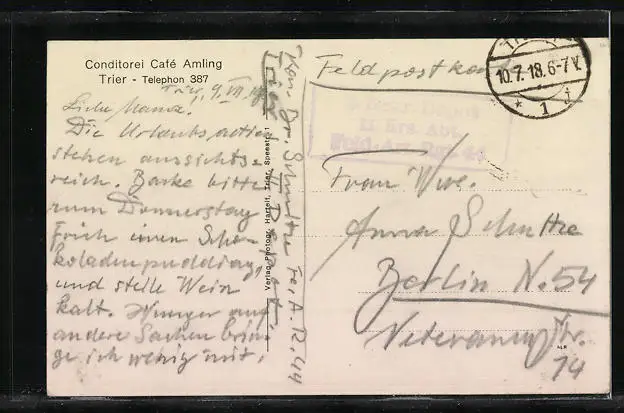 Conditorei Café Amling
Trier - Telephon 387
Trier, 9. VII. 18
Liebe Mama.
Die Urlaubsaktien
stehen aussichts=
reich. Backe bitte
zum Donnerstag
Früh einen Scho=
koladenpudding,
und stelle Wein
kalt. Hunger auf
andere Sachen brin=
ge ich wenig mit.
Verlag Photogr. Hartelt, Trier, Speestr. 1
Kan. Dr. Schultze
Trier
Feldpostkarte
10.7.18.6-7V.
* 1 j
II Ers. Abt.
Feld-Art. Rgt. 44
Frau Wwe.
Anna Schultze
Berlin N. 54
Veteranenstr.
14